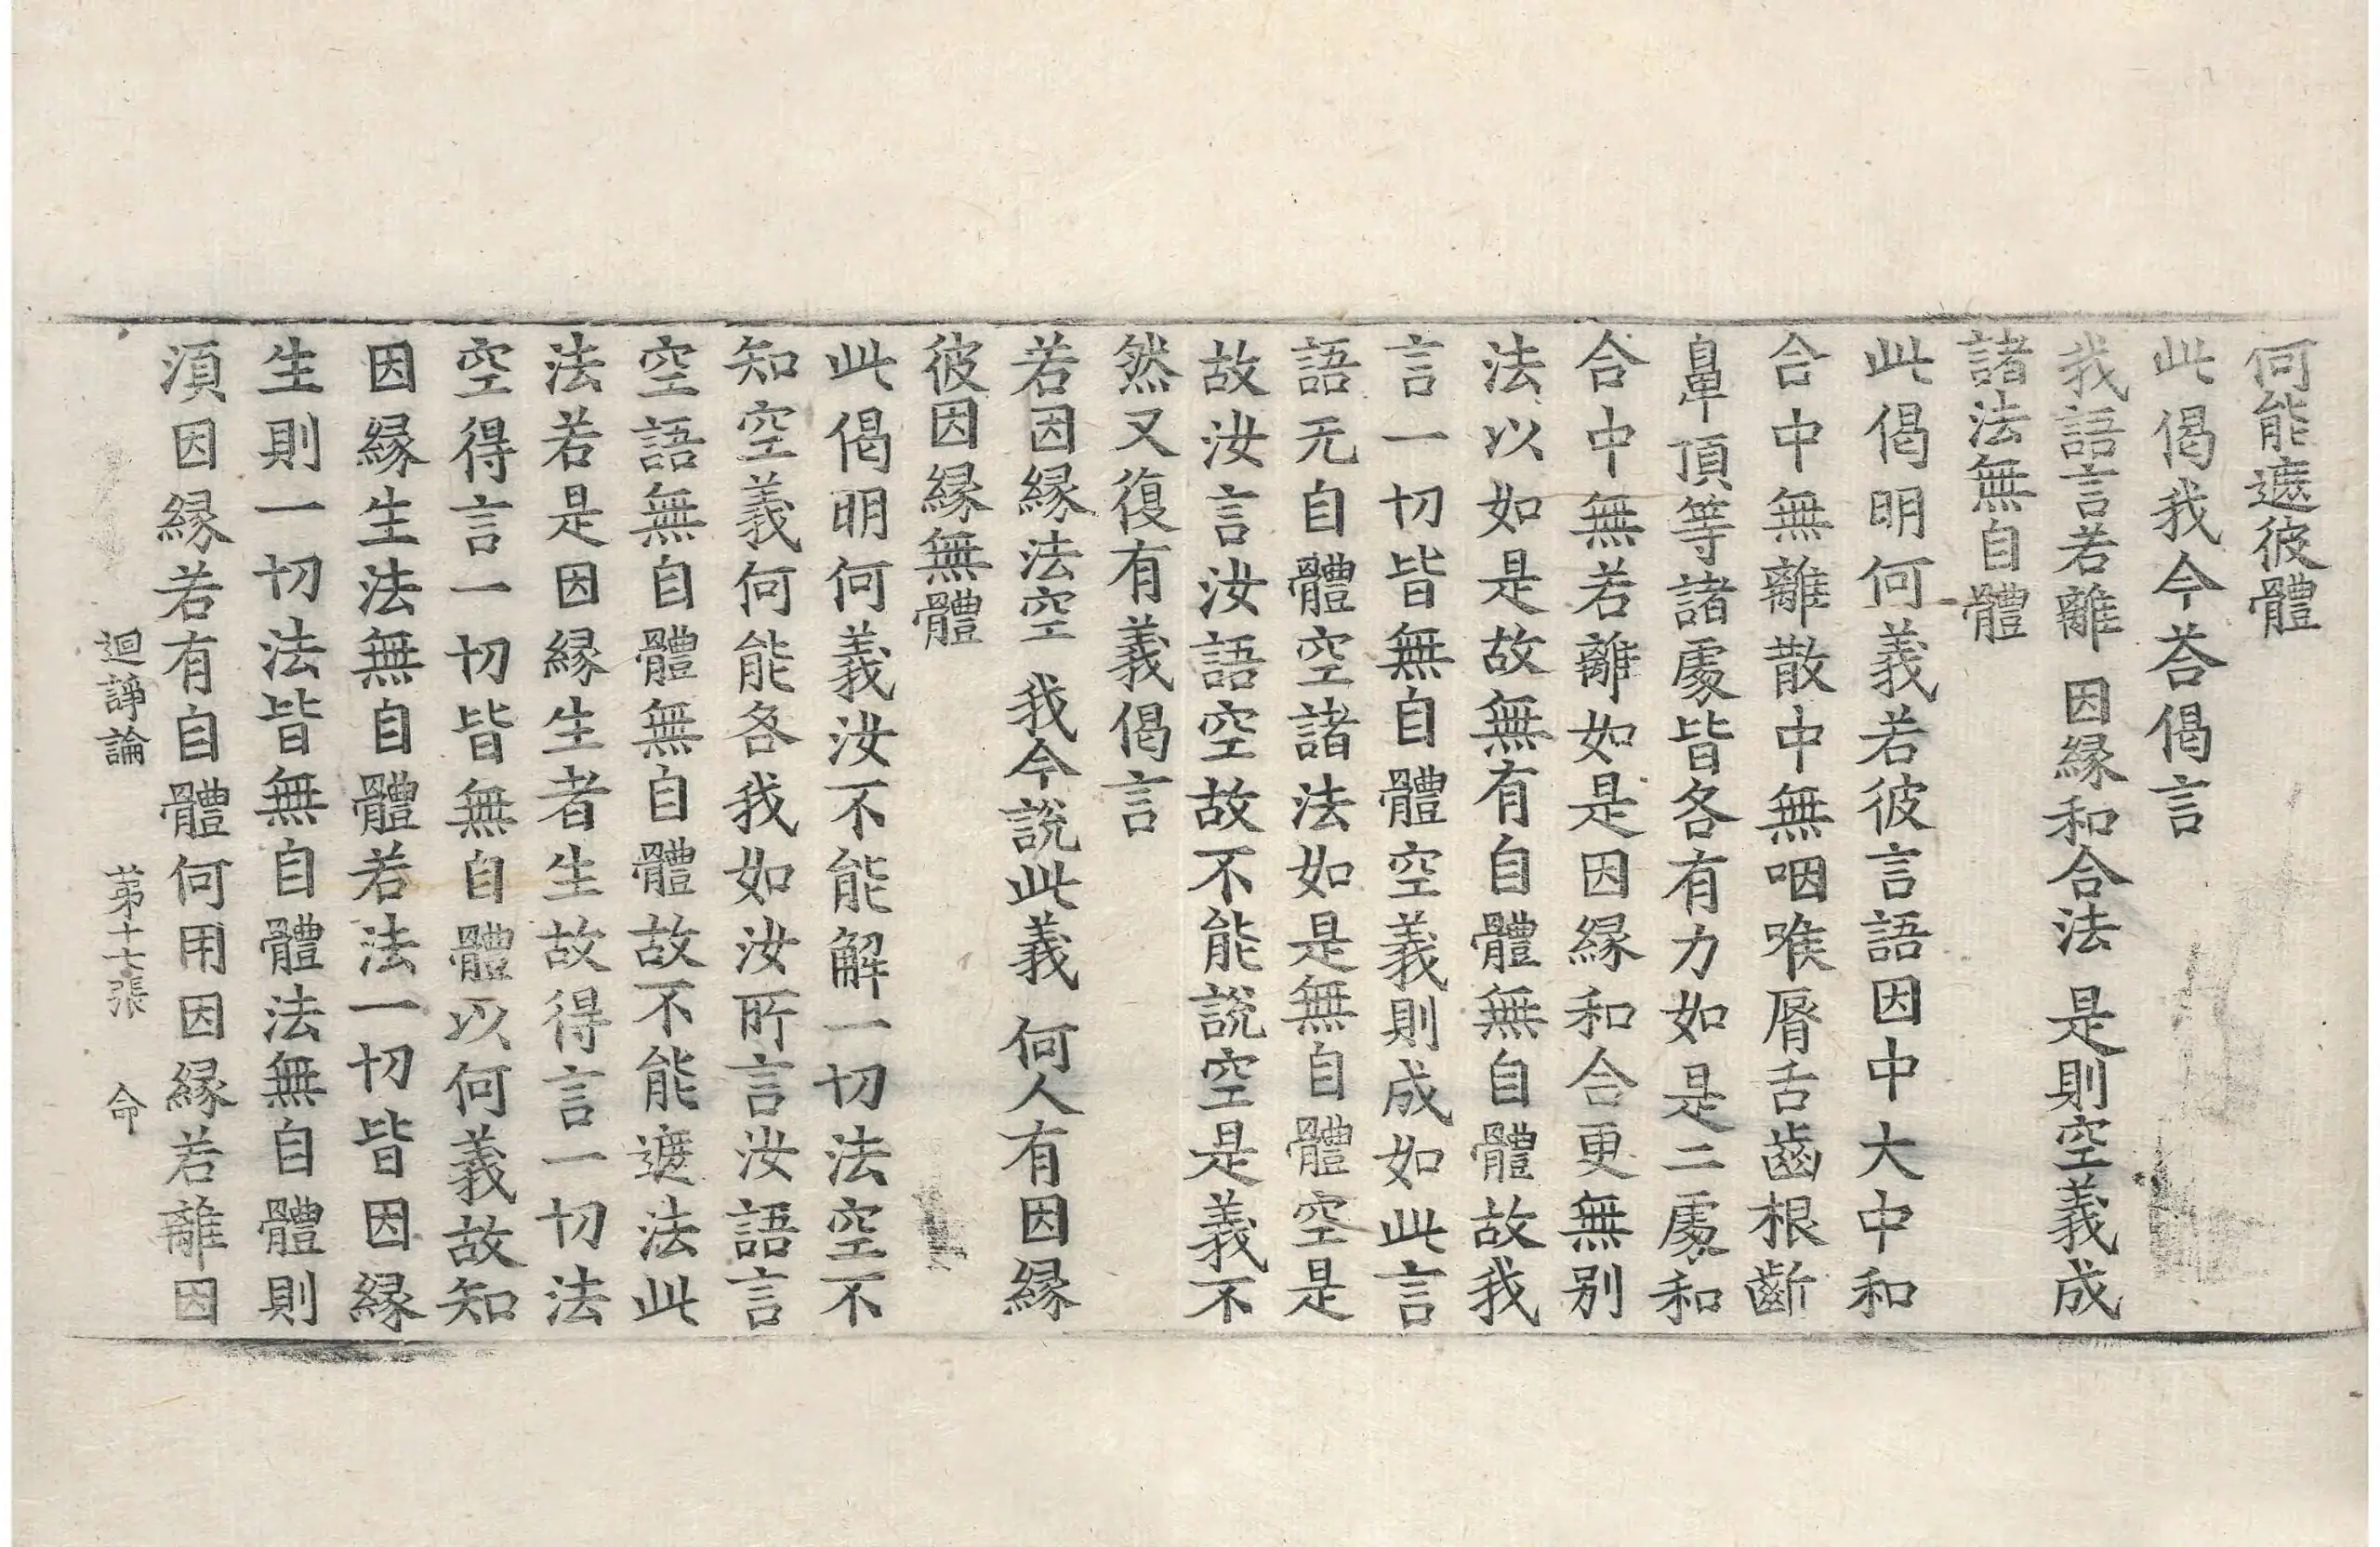 何能遮彼體
此偈我今荅偈言
我語言若離 因縁和合法 是則空義成
諸法無自體
此偈明何義若彼言語因中大中和
合中無離散中無咽喉脣舌齒根齗
鼻頂等諸處皆各有力如是二處和
合中無若離如是因縁和合更無别
法以如是故無有自體無自體故我
言一切皆無自體空義則成如此言
語无自體空諸法如是無自體空是
故汝言汝語空故不能説空是義不
然又復有義偈言
若因縁法空 我今説此義 何人有因縁
彼因縁無體
此偈明何義汝不能解一切法空不
知空義何能各我如汝所言汝語言
空語無自體無自體故不能遮法此
法若是因縁生者生故得言一切法
空得言一切皆無自體以何義故知
因縁生法無自體若法一切皆因縁
生則一切法皆無自體法無自體則
湏因縁若有自體何用因縁若離因
迴諍論 苐十七張 命